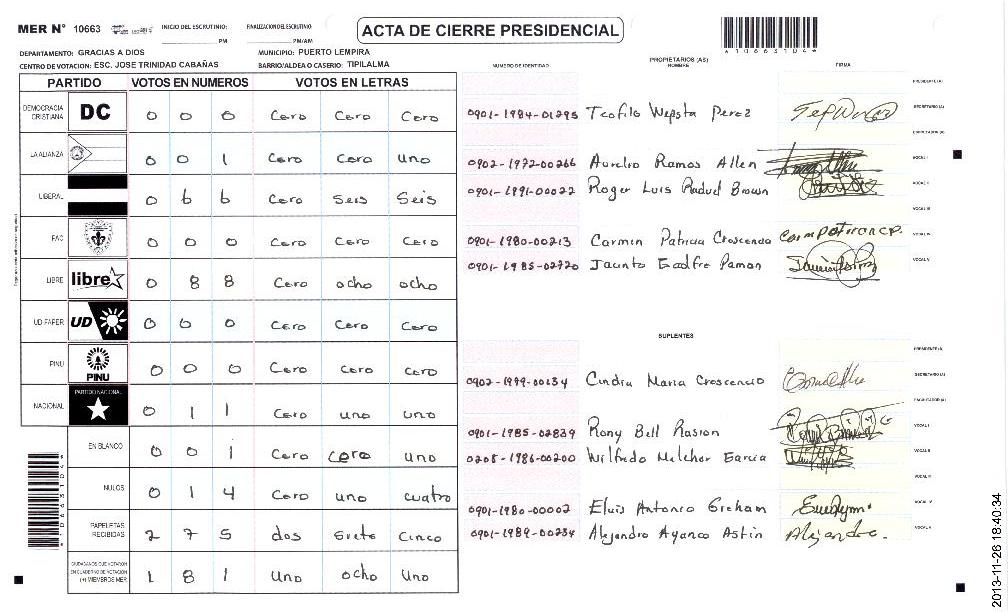 MER N° 10663 INICIO DEL ESCRUTINIO: PM FINALIZACION DEL ESCRUTINIO PM/AM ACTA DE CIERRE PRESIDENCIAL
410663104
DEPARTAMENTO: GRACIAS A DIOS MUNICIPIO: PUERTO LEMPIRA
CENTRO DE VOTACION: ESC. JOSE TRINIDAD CABAÑAS BARRIO/ALDEA O CASERIO: TIPILALMA
NUMERO DE IDENTIDAD PROPIETARIOS (AS) NOMBRE FIRMA
PARTIDO VOTOS EN NUMEROS VOTOS EN LETRAS
PRESIDENTE (A)
DEMOCRACIA CRISTIANA DC 0 0 0 Cero Cero Cero
0901-1984-01295 Teofilo Wepsta Perez SECRETARIO (A)
ESCRUTADOR (A)
LA ALIANZA 0 0 1 Cero Cero uno
0902-1972-00266 Aurelio Ramos Allen VOCAL I
LIBERAL 0 6 6 Cero Seis Seis
0901-1991-00022 Roger Luis Raduel Brown VOCAL II
VOCAL III
FAC 0 0 0 Cero Cero Cero
0901-1980-00213 Carmin Patricia Crescencio VOCAL IV
LIBRE libre 0 8 8 Cero ocho ocho
0901-1985-02720 Jacinto Eadfre Pamon VOCAL V
UD-FAPER UD 0 0 0 Cero Cero Cero
SUPLENTES
PRESIDENTE (A)
PINU PINU 0 0 0 Cero Cero Cero
0902-1999-00134 Cindia Maria Crescencio SECRETARIO (A)
NACIONAL PARTIDO NACIONAL 0 1 1 Cero uno uno
ESCRUTADOR (A)
0901-1985-02839 Rony Bell Rasion VOCAL I
EN BLANCO 0 0 1 Cero cero uno
0205-1986-00200 Wilfredo Melchor Garcia VOCAL II
VOCAL III
NULOS 0 1 4 Cero uno cuatro
0901-1980-00002 Eluis Antonio Greham VOCAL IV
PAPELETAS RECIBIDAS 2 7 5 dos Siete Cinco
0901-1989-00234 Alejandro Ayanco Astin VOCAL V
CIUDADANOS QUE VOTARON EN CUADERNO DE VOTACION (+) MIEMBROS MER 1 8 1 Uno ocho Uno
2013-11-26 18:40:34